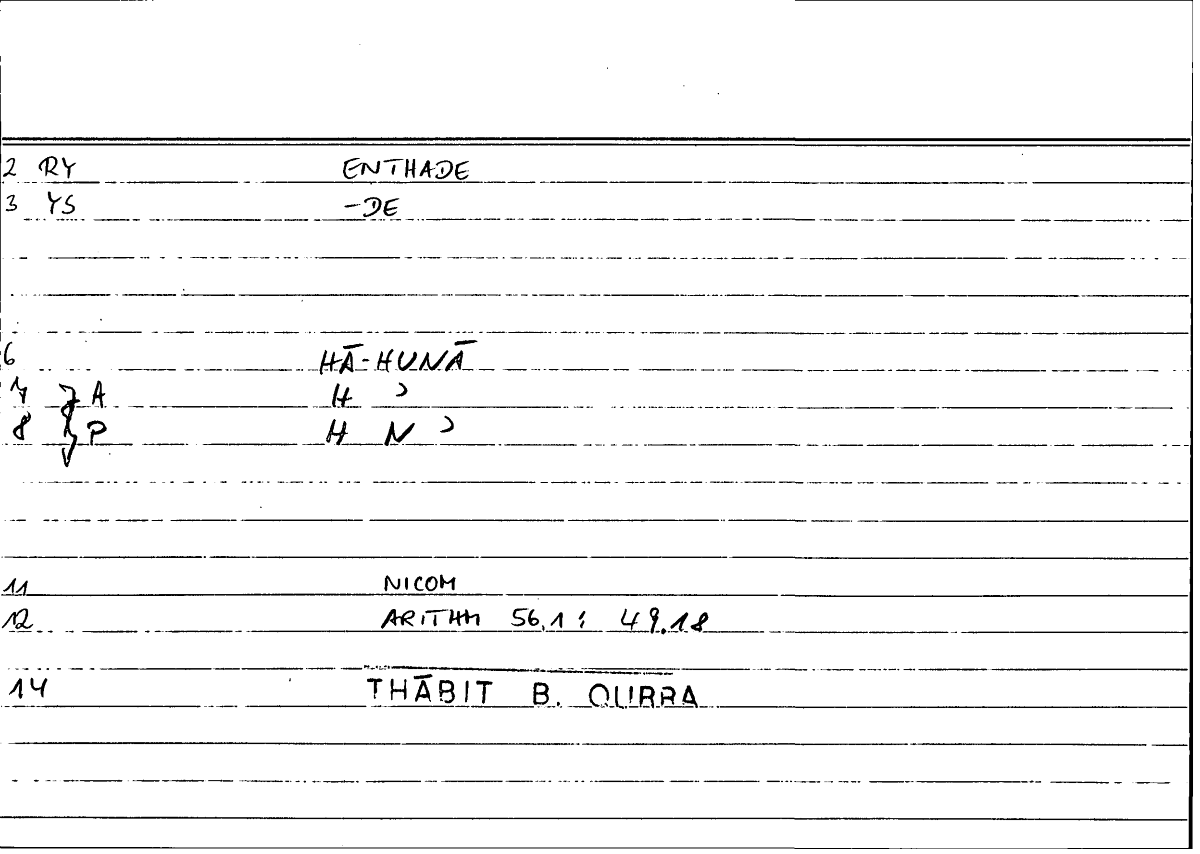 2 RY ENTHADE
3 YS -DE
6 HĀ-HUNĀ
7 A H ʾ
8 P H N ʾ
11 NICOM
12 ARITHM 56,1 : 49,18
14 THĀBIT B. QURRA